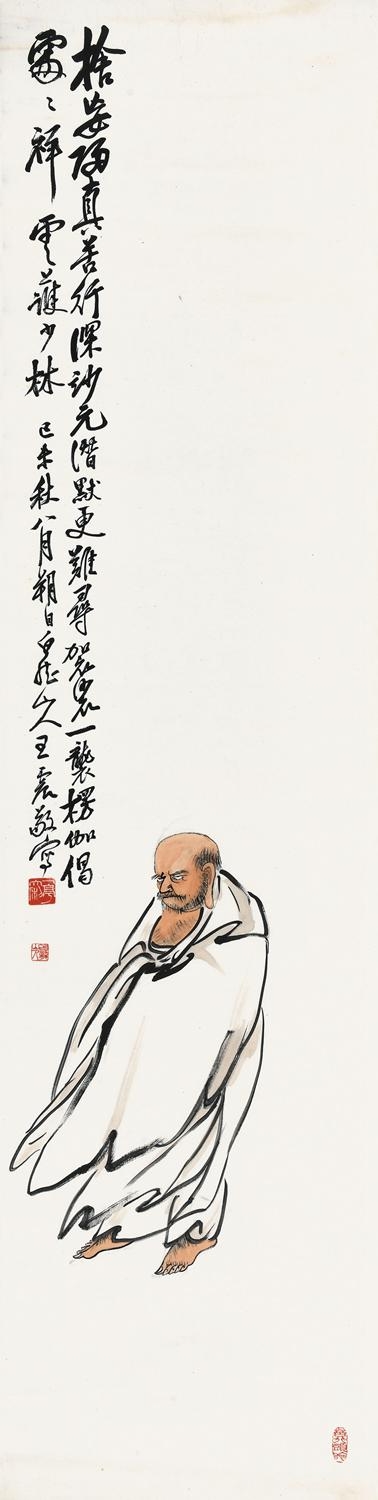 捨妄歸真善行深玅元潛默更難尋袈裟一襲楞伽偈
靄〻祥雲護少林 己未秋八月朔日白龍山人王震敬寫